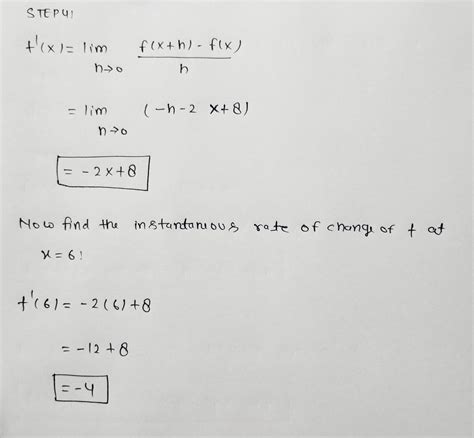 STEP4:
f'(x) = lim f(x+h) - f(x)
h→0 h
= lim (-h-2 x+8)
h→0
= -2x+8
Now find the instantaneous rate of change of f at
x=6:
f'(6) = -2(6)+8
= -12+8
= -4